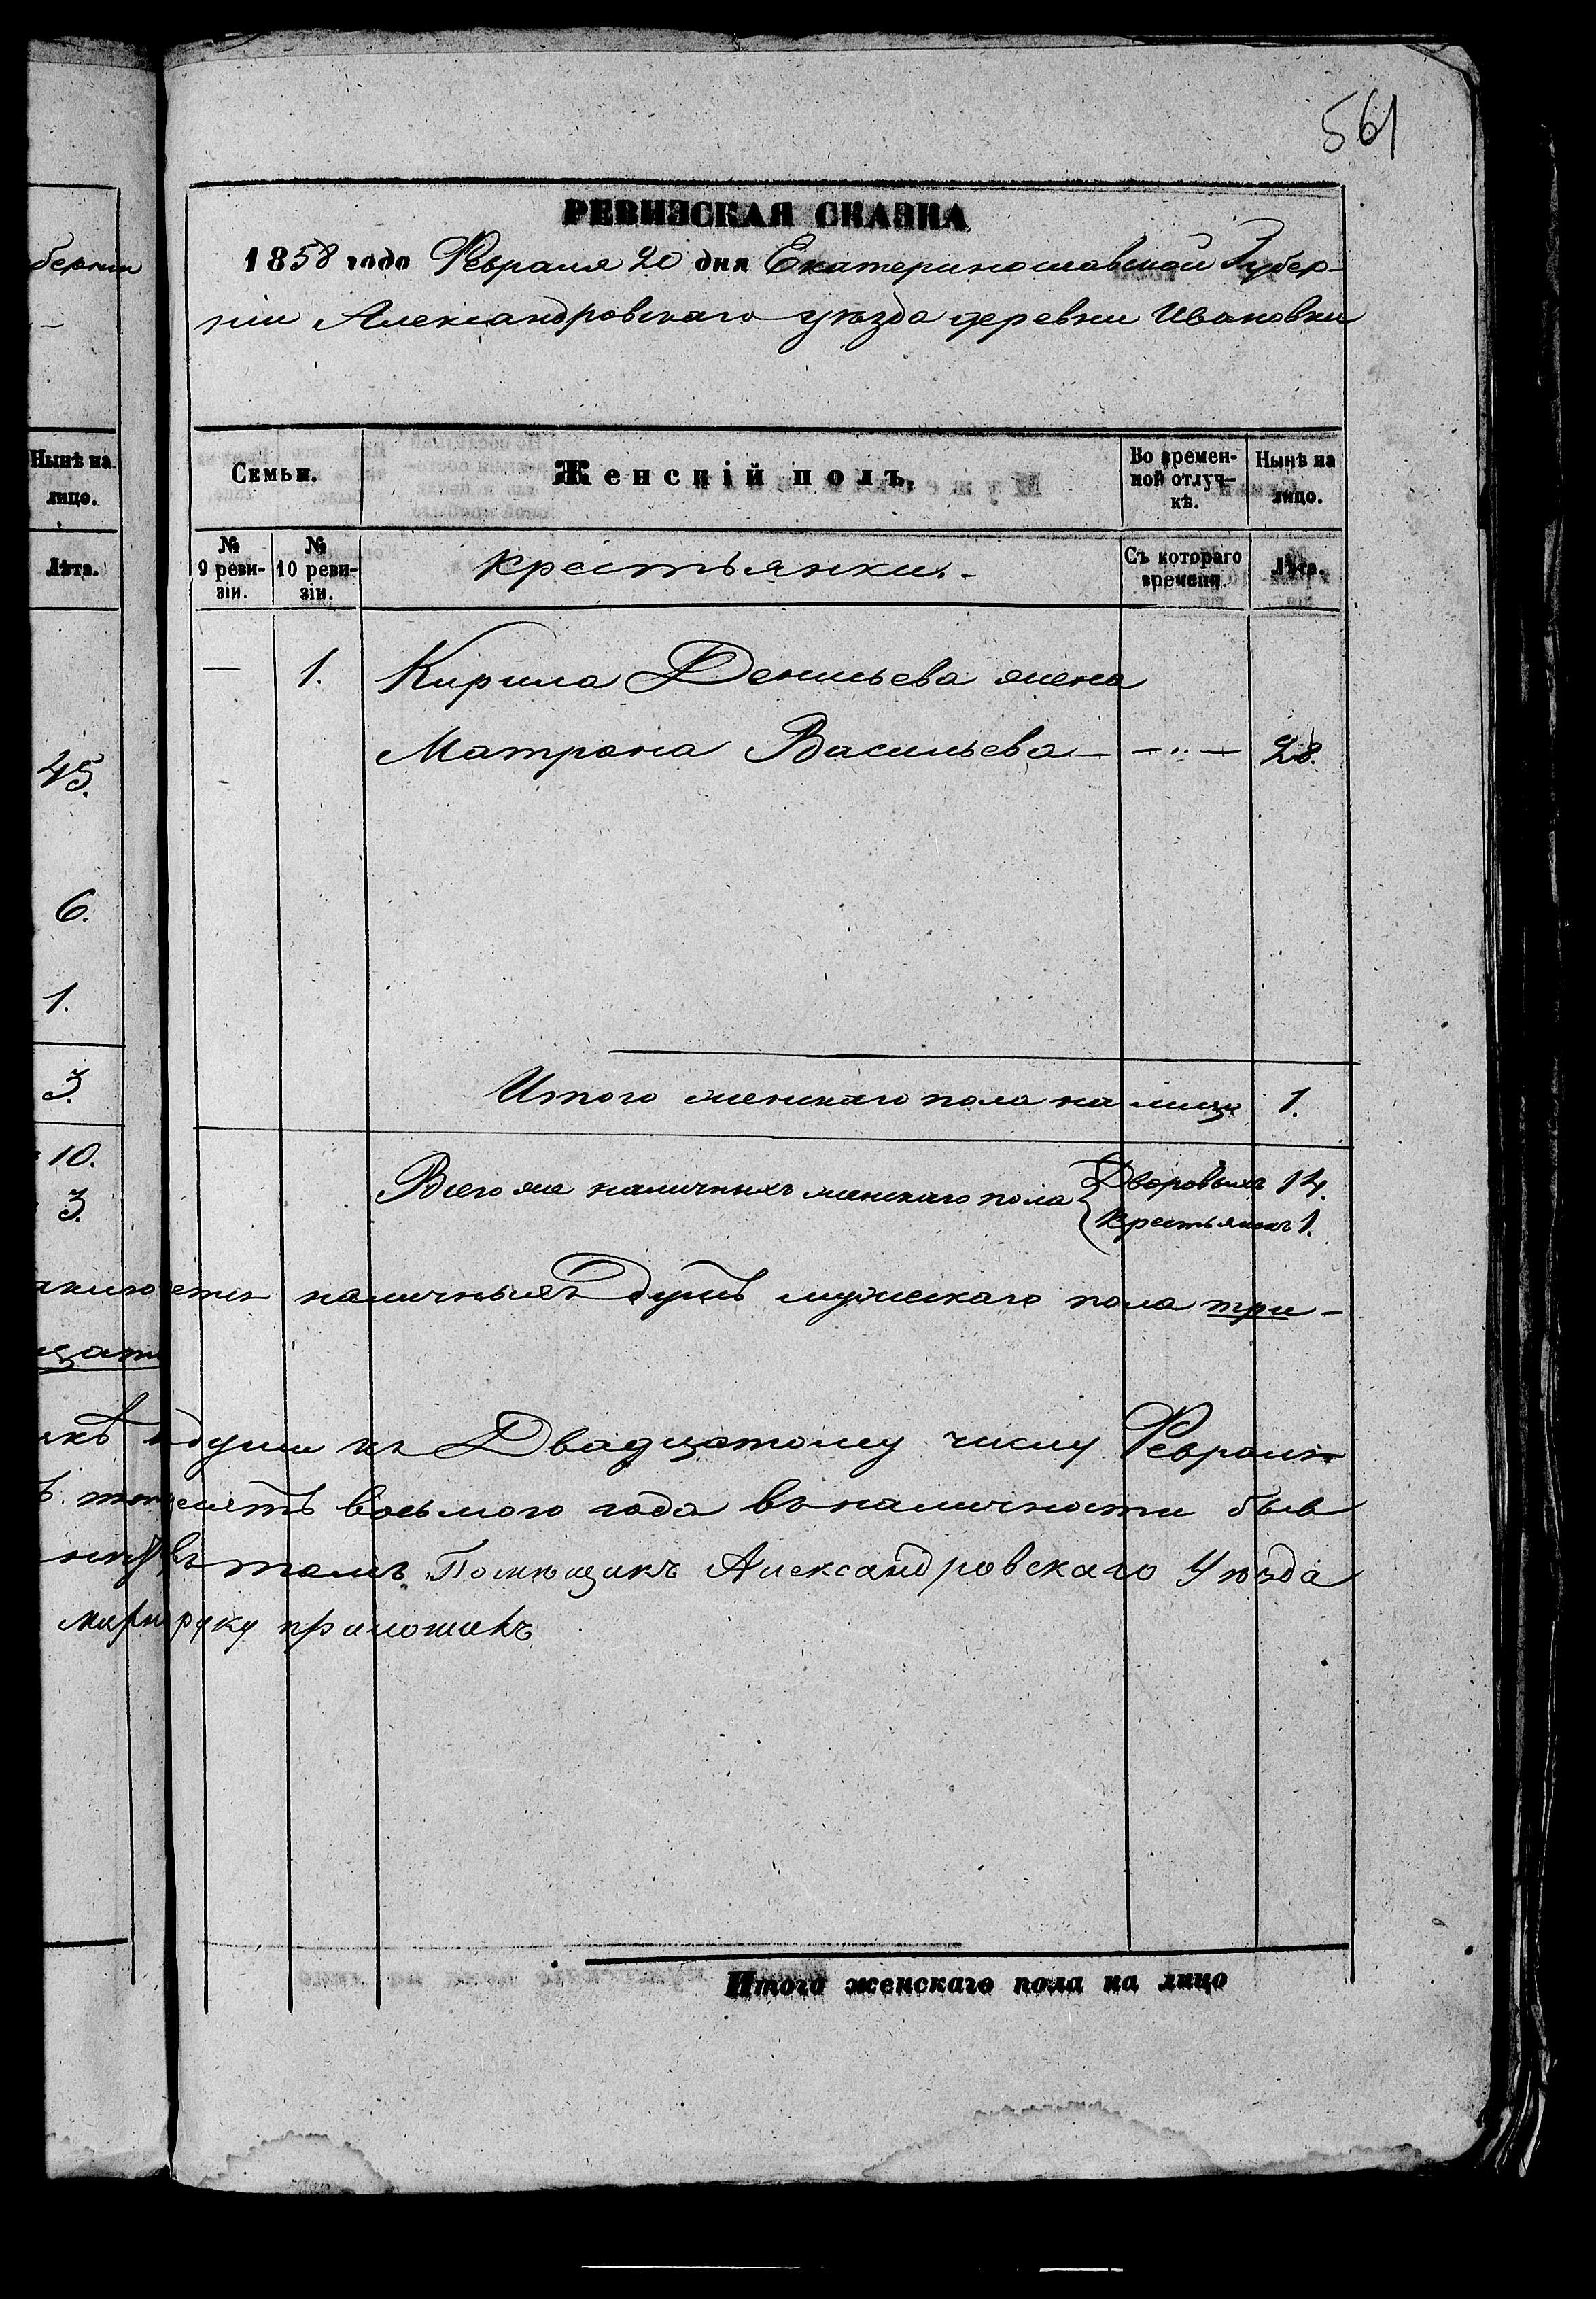 561
РЕВИЗСКАЯ СКАЗКА
1858 года Февраля 20 дня Екатеринославской Губер-
ніи Александровскаго уѣзда деревни Ивановки
Семьи.
Женскій полъ.
Во времен-
ной отлуч-
кѣ.
Нынѣ на
лицо.
№
9 реви-
зіи.
№
10 реви-
зіи.
крестьянки.
Съ котораго
времени.
Лѣта.
— 1. Кирила Деньева жена
Матрона Васильева — — „ — 28.
Итого женскаго пола на лицо 1.
Всего же наличныхъ женскаго пола { Дворовыхъ 14.
Крестьянокъ 1.
наличныхъ душъ мужескаго пола три-
души къ Двадцатому числу Февраля
восьмого года въ наличности быв
въ томъ Помѣщикъ Александровскаго Уѣзда
руку приложилъ
Итого женскаго пола на лицо
берніи
Нынѣ на
лицо.
Лѣта.
45.
6.
1.
3.
10.
3.